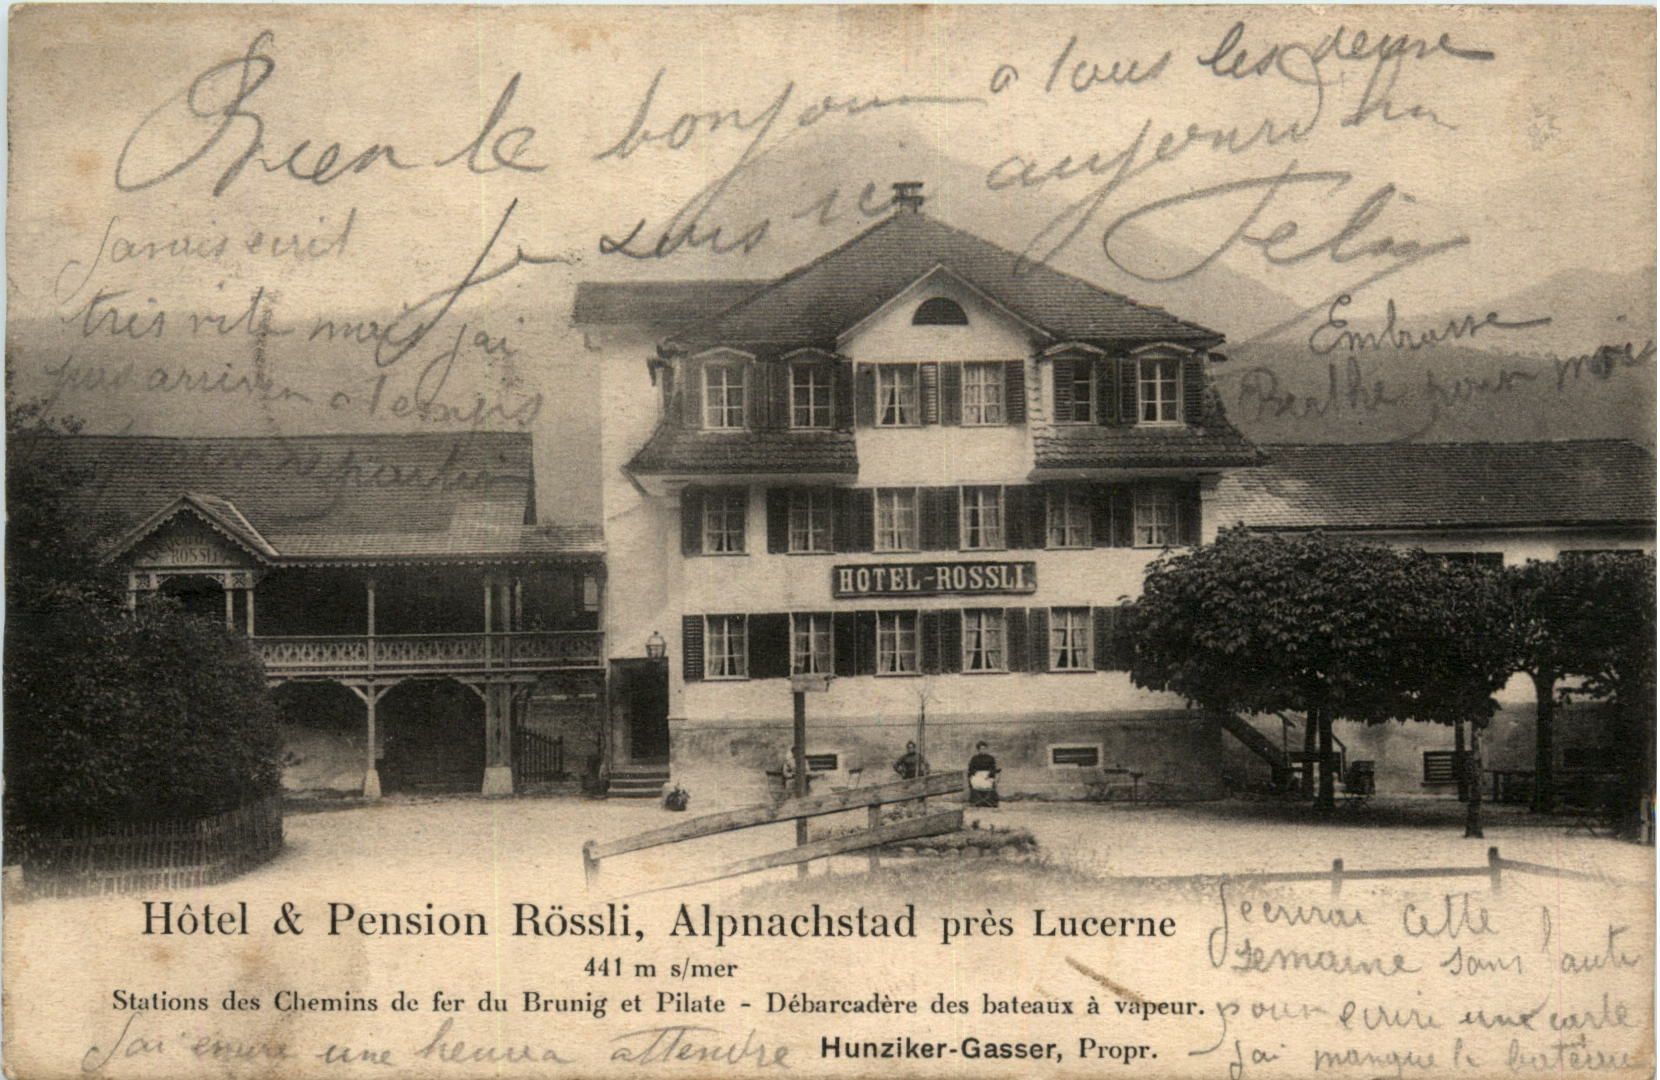 Bien le bonjour a tous les deux
Je suis ici aujourd hui
Felix
Javais ecrit
très vite mais jai
pas arriver a temps
partir
Embrasse
Berthe pour moi
ROSSLI
HOTEL-ROSSLI.
Hôtel & Pension Rössli, Alpnachstad près Lucerne
441 m s/mer
Stations des Chemins de fer du Brunig et Pilate - Débarcadère des bateaux à vapeur.
Hunziker-Gasser, Propr.
Jecrirai cette
semaine sans faute
pour ecrire une carte
jai manque le bateau
Jai encore une heure a attendre